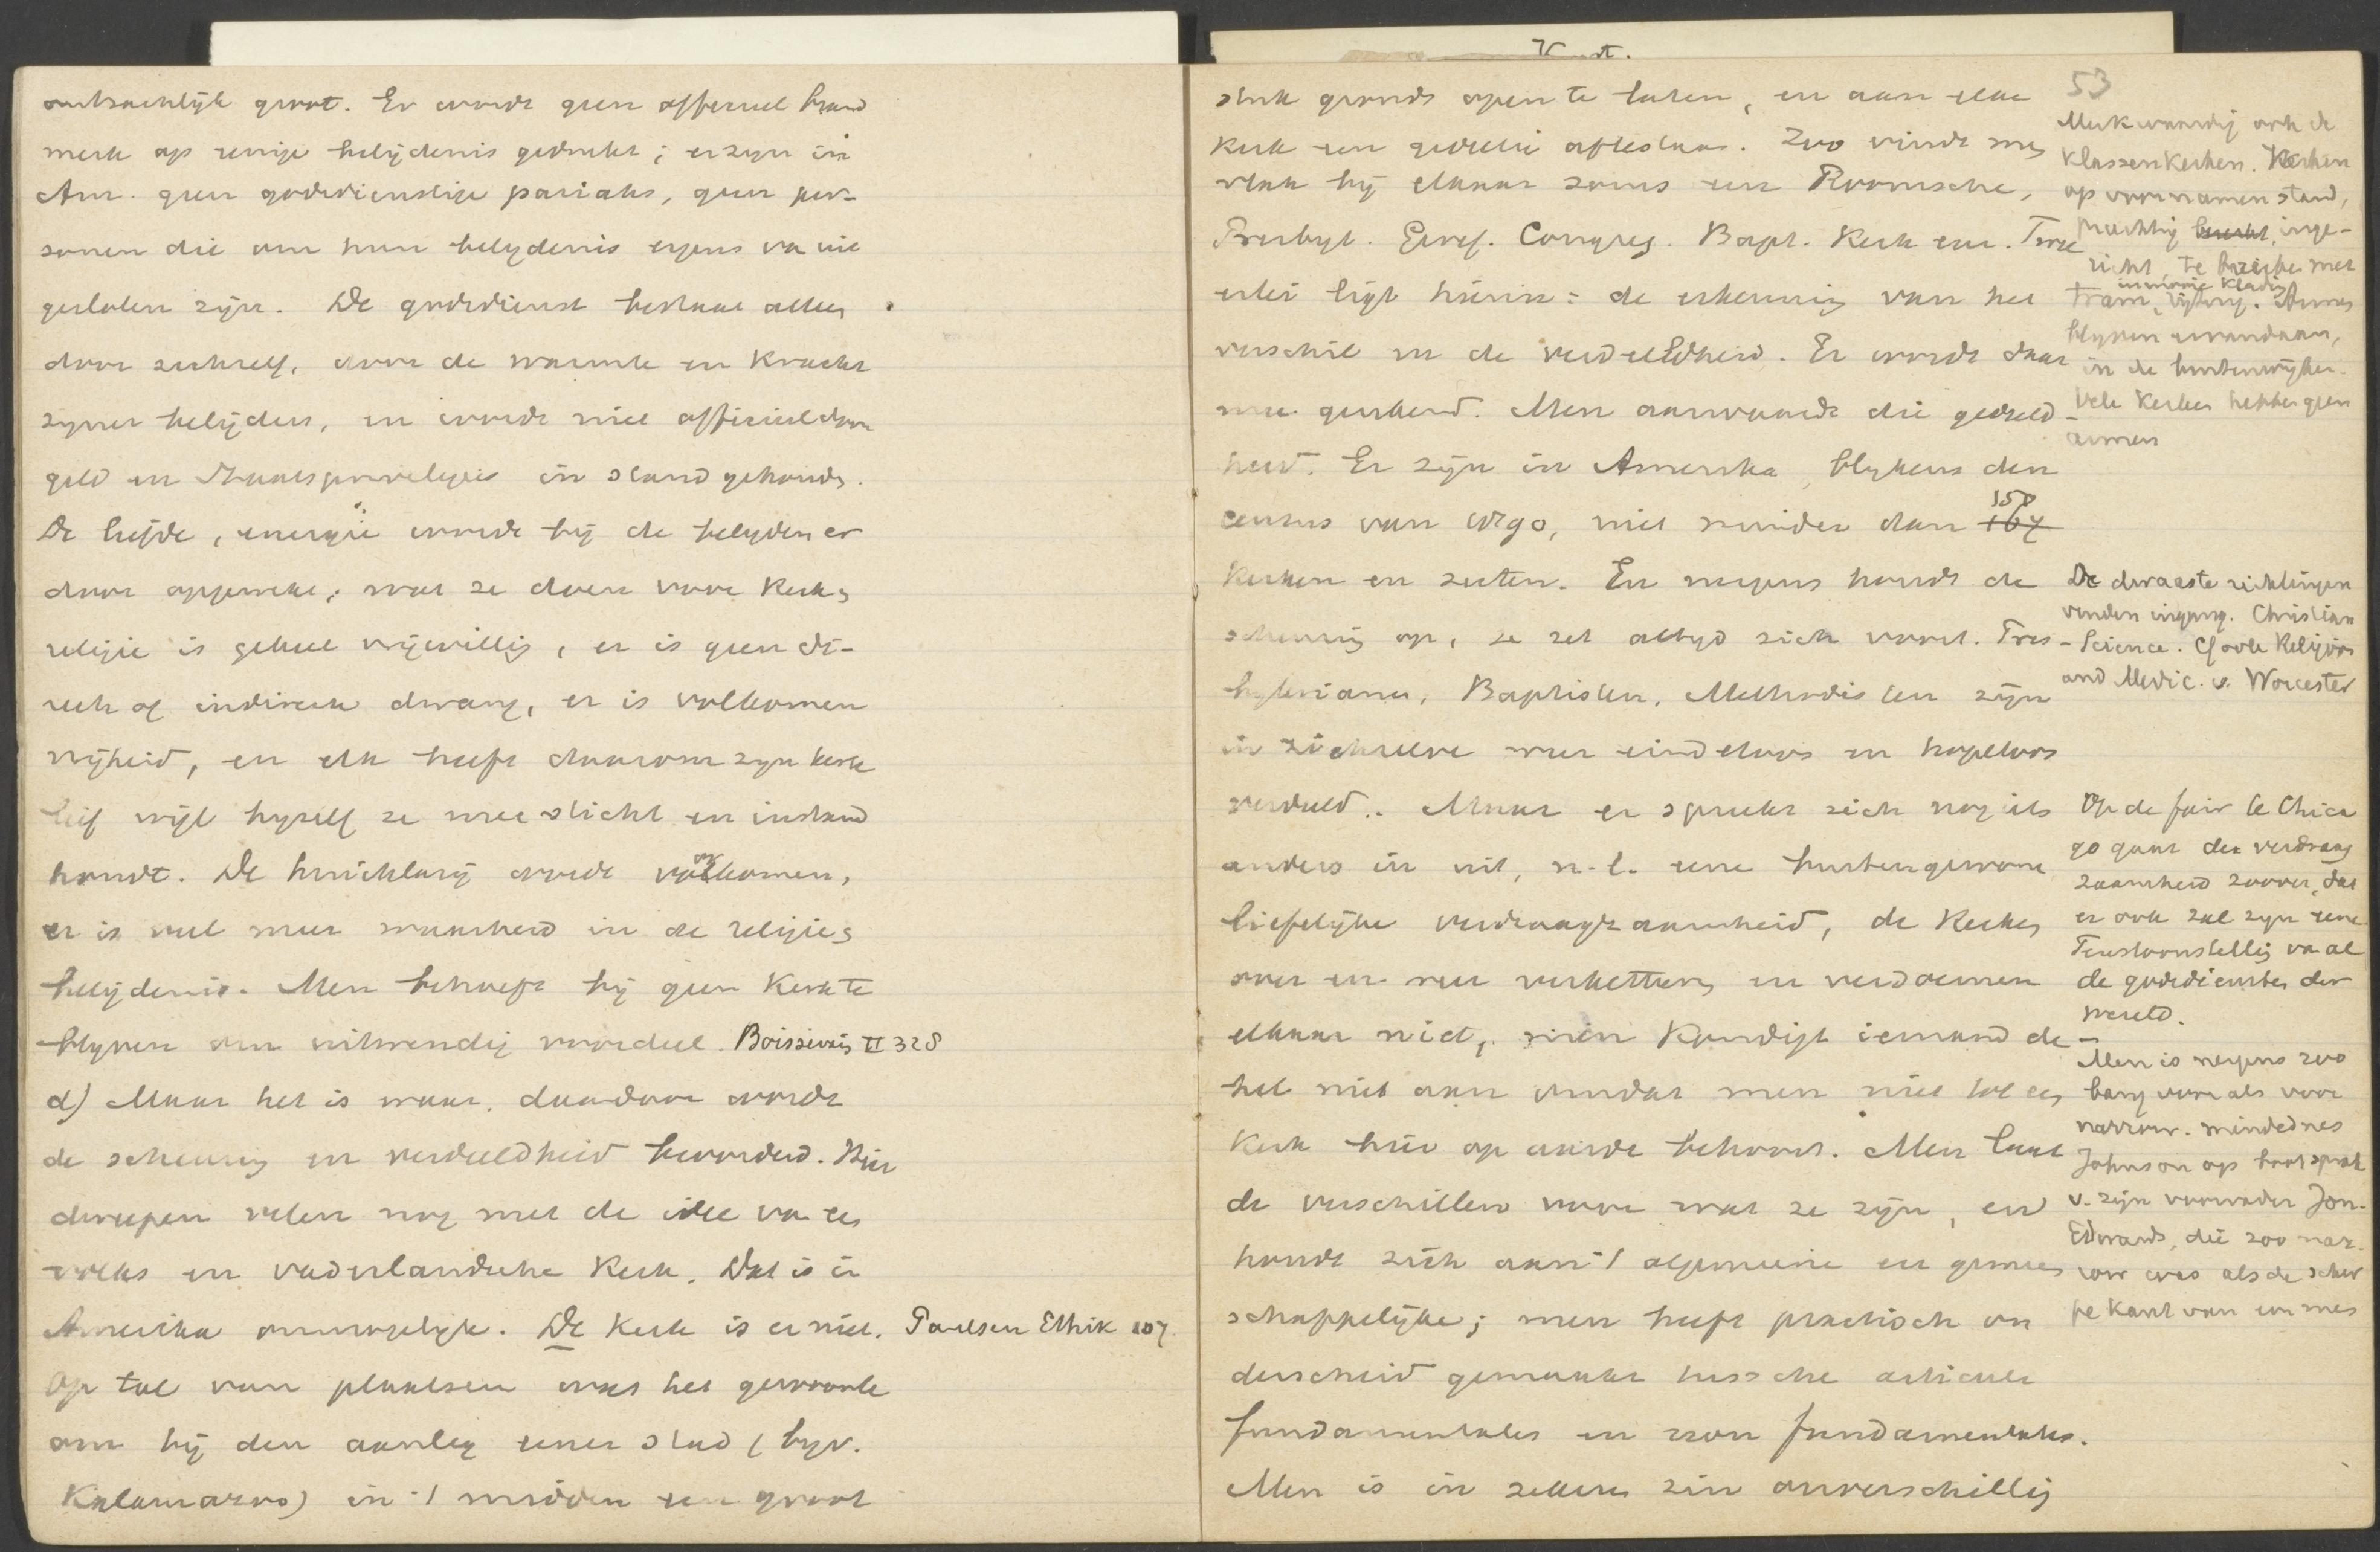 ontzachlijk groot. Er wordt geen officieel brand
merk op eenige belijdenis gedrukt; er zijn in
Am. geen godsdienstige pariahs, geen per-
sonen die om hun belydenis ergens va uit
gesloten zijn. De godsdienst bestaat alleen
door zichzelf, door de warmte en kracht
zyner belijders, en wordt niet officieel door
geld en Staatsprivelegies in stand gehouden.
De liefde, energie wordt bij de belyders er
door opgewekt; wat ze doen voor Kerk en
religie is geheel vrijwillig, er is geen di-
rect of indirecte dwang, er is volkomen
vrijheid, en elk heeft daarom zyn kerk
lief wijl hyzelf ze mee sticht en instand
houdt. De huichlarij wordt voorkomen,
er is veel meer waarheid in de religie en
belijdenis. Men behoeft bij geen Kerk te
blyven om uitwendig voordeel. Boissevain II 328
d) Maar het is waar, daardoor wordt
de scheuring en verdeeldheid bevorderd. Hier
dweepen velen nog met de idee va een
volks en vaderlandsche Kerk. Dat is in
Amerika onmogelyk. De Kerk is er niet. Paulsen Ethik 107
Op tal van plaatsen was het gewoonte
om bij den aanleg eener stad (byv.
Kalamazoo) in 't midden een groot
Kerk en gedeelte af te staan. Zoo vindt men
stuk gronds open te laten, en aan elke
vlak bij elkaar soms een Roomsche,
Presbyt. Geref. Congreg. Bapt. Kerk enz. Twee
erlei ligt hierin: de erkenning van het
verschil en de verdeeldheid. Er wordt daar
mee gerekend. Men aanvaardt die gedeeld
heid. Er zijn in Amerika, blykens den
census van 1890, niet minder dan 150 167
Kerken en secten. En nergens houdt de
scheuring op, ze zet altyd zich voort. Pres-
byterianen, Baptisten, Methodisten zijn
in zichzelve weer eindeloos en hopeloos
verdeeld.. Maar er spreekt zich nog iets
anders in uit, n.l. eene buitengewone
liefelijke verdraagzaamheid, de Kerken
over en weer verketteren en verdoemen
elkaar niet, men kondigt iemand de
hel niet aan omdat men niet tot een
Kerk hier op aarde behoort. Men laat
de verschillen voor wat ze zijn, en
houdt zich aan 't algemeene en gemeen
schappelijke; men heeft practisch on
derscheid gemaakt tussche articuli
fundamentales en non fundamentales.
Men is in zekeren zin onverschillig
53
Merkwaardig ook de
Klassenkerken. Kerken
op voornamen stand,
prachtig inge-
richt, te bereiken met
tram, rijtuig. in mooie kleding Armen
blyven er vandaan,
in de buitenwijken.
Vele Kerken hebben geen
armen
De dwaaste richtingen
vinden ingang. Christian
Science. Ook Religion
and Medic. v. Worcester
Op de fair te Chica
go gaat de verdraag
zaamheid zoover, dat
er ook zal zyn eene
Tentoonstelling va al
de godsdiensten der
wereld.
Men is nergens zoo
bang voor als voor
narrow-mindednes
Johnson op
v. zijn voorvader Jon.
Edwards, die zoo nar-
row was als de scher
pe kant van een mes